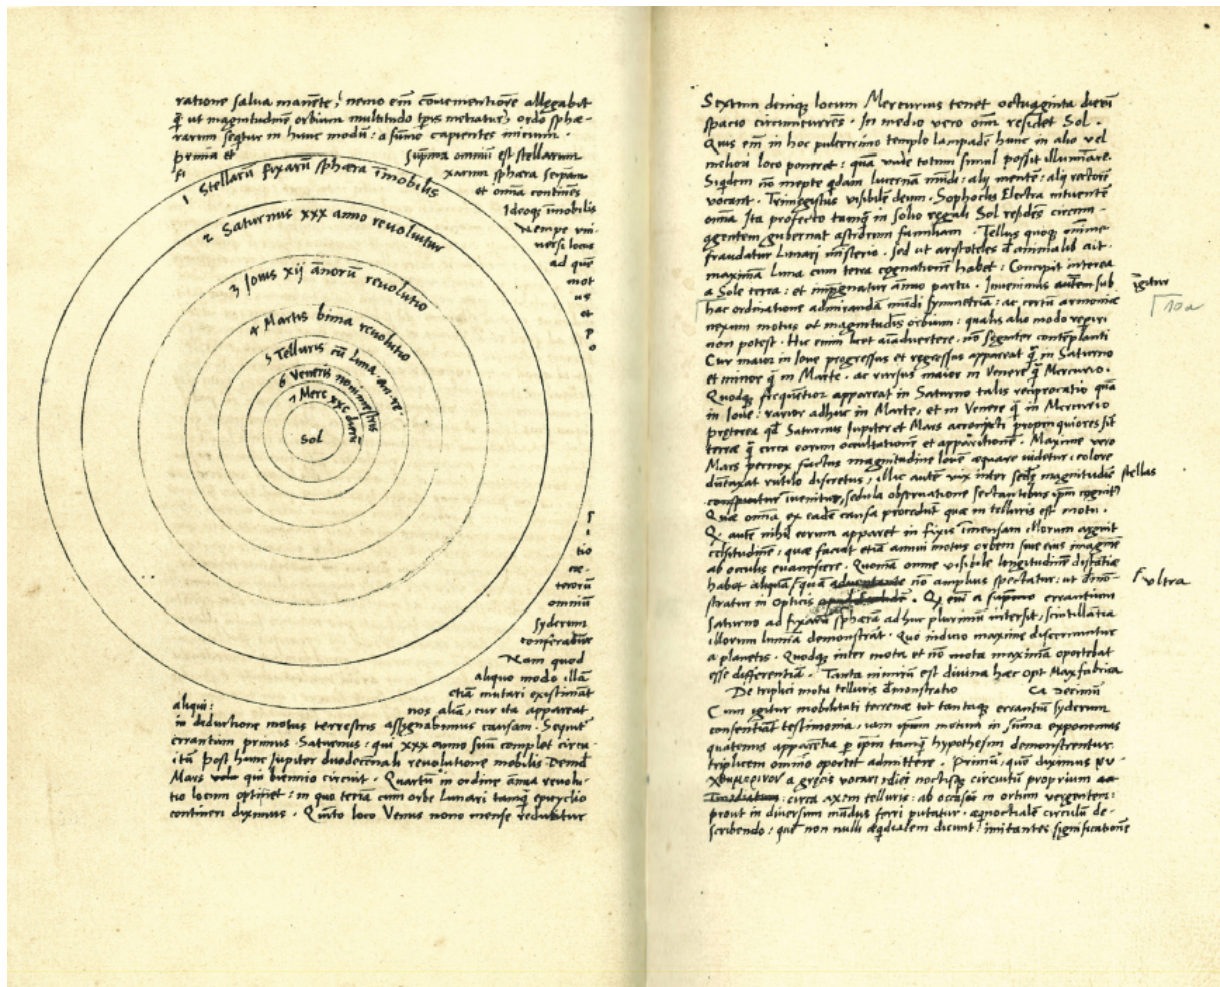 ratione salua manēte, nemo em̄ cōuenientiorē allegabit
q̄ ut magnitudinē orbium multitudo tp̄is metiatur, ordo sphæ-
rarum seqtur in hunc modū: a sūmo capientes inicium.
prima et suprema omniū est stellarum
fixarum sphæra seipam
et omīa continēs
Ideoqȝ īmobilis
Nempe vni-
uersi locus
ad quē
mot
us
et
po
1 Stellarū fixarū sphæra īmobilis
2 Saturnus xxx anno reuoluitur
3 Jouis xij annorū reuolutio
4 Martis bima reuolutio
5 Telluris cū Luna an. re.
6 Veneris nonimestris
7 Merc xxc dierū
Sol
si
tio
cæ-
terorū
omniū
syderum
conferatur
Nam quod
aliquo modo illā
etiā mutari existimāt
aliqui: nos aliā, cur ita appareat
in deductione motus terrestris assignabimus causam. Sequit̄
errantium primus Saturnus: qui xxx anno suū complet circu-
itū Post hunc Jupiter duodecinali reuolutione mobilis Deinde
Mars qui biennio circuit. Quartū in ordine ānua reuolu-
tio locum optinet: in quo terrā cum orbe Lunari tamqȝ epicyclio
contineri diximus. Quinto loco Venus nono mense reducitur
Sextum deniqȝ locum Mercurius tenet octuaginta dierū
spacio circumcurrēs. In medio vero omī residet Sol.
Quis em̄ in hoc pulcerrimo templo lampadē hanc in alio vel
meliori loco poneret: quā vnde totum simul possit illuminare.
Siqdem nō inepte qdam lucernam mūdi: alij mentē: alij rectorē
vocant. Trimegistus visibilē deum. Sophoclis Electra intuentē
omīa Ita profecto tamqȝ in solio regali Sol residēs circum-
agentem gubernat astrorum familiam. Tellus quoqȝ minime
fraudatur Lunari ministerio. Sed ut aristoteles de animalib ait.
maximā Luna cum terra cognationē habet: Concipit interea
a Sole terra: et impregnatur ānuo partu. Inuenimus igitur sub
hac ordinatione admirandā mūdi symmetriā: ac certū armoniæ
nexum motus et magnitudinis orbium: qualis alio modo reperiri
non potest. Hic enim licet aīaduertere, nō segniter contēplanti
Cur maior in Ioue progressus et regressus appareat q̄ in Saturno
et minor q̄ in Marte. ac rursus maior in Venere q̄ Mercurio.
Quodqȝ frequētior appareat in Saturno talis reciprocatio quā
in Ioue: rarior adhuc in Marte, et in Venere q̄ in Mercurio
Præterea qd Saturnus Jupiter et Mars acronycti propinquiores sīt
terræ q̄ circa eorum occultationē et apparitionē. Maxime vero
Mars pernox factus magnitudine Iouē æquare videtur: colore
dūtaxat rutilo discretus, illic autē vix inter secūdæ magnitudīe stellas
inuenitur, sedula obseruatione sectantibus ipm cognit
Quæ omīa ex eadē causa procedūt quæ in telluris est motu.
Q autē nihil eorum apparet in fixis īmensam illorum arguit
celsitudinē, quæ faciat etiā annui motus orbem siue eius imaginē
ab oculis euanescere. Quoniā omne visibile longitudinē distātiæ
habet aliquā vltra quā nō amplius spectatur: ut demō-
stratur in Opticis. Q em̄ a supremo errantium
Saturno ad fixarū sphærā adhuc plurimū intersit, scintillātia
illorum lumīa demonstrāt. Quo indicio maxime discernuntur
a planetis. Quodqȝ inter mota et nō mota maximā oportebat
esse differentiā. Tanta nimirū est diuina hæc Opt Max fabrica
De triplici motu telluris demonstratio Ca Decimū
Cum igitur mobilitati terrenæ tot tantaqȝ errantiū syderum
consentiāt testimonia, iam ipum motum in sūma exponemus
quatenus apparētia p ipm tamqȝ hypothesim demonstrentur.
triplicem omnīo oportet admittere. Primū, quē diximus νυ-
χθημερινον a græcis vocari: diei noctisqȝ circuitū proprium
circa axem telluris: ab occasu in ortum vergentem:
prout in diuersum mūdus ferri putatur. æquinoctialē circulū de-
scribendo: quē non nulli æqdialem dicunt: imitantes significationē